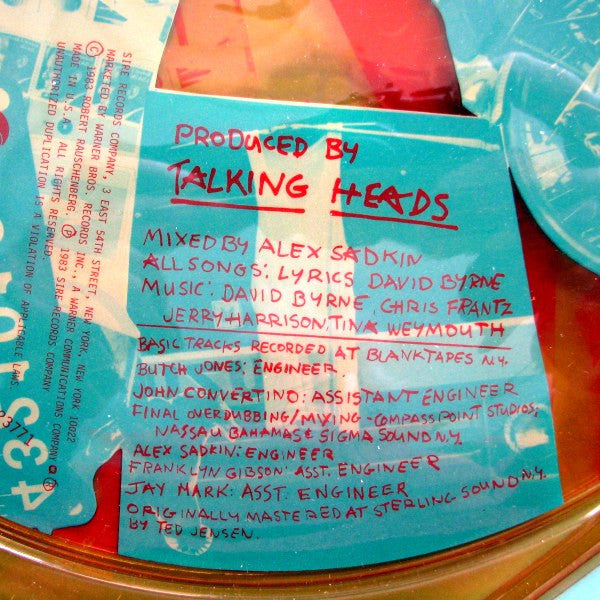 PRODUCED BY
TALKING HEADS
MIXED BY ALEX SADKIN
ALL SONGS: LYRICS DAVID BYRNE
MUSIC: DAVID BYRNE, CHRIS FRANTZ
JERRY HARRISON, TINA WEYMOUTH
BASIC TRACKS RECORDED AT BLANKTAPES N.Y.
BUTCH JONES: ENGINEER.
JOHN CONVERTINO: ASSISTANT ENGINEER
FINAL OVERDUBBING/MIXING - COMPASS POINT STUDIOS,
NASSAU BAHAMAS & SIGMA SOUND N.Y.
ALEX SADKIN: ENGINEER
FRANKLYN GIBSON: ASST. ENGINEER
JAY MARK: ASST. ENGINEER
ORIGINALLY MASTERED AT STERLING SOUND N.Y.
BY TED JENSEN.
SIRE RECORDS COMPANY, 3 EAST 54TH STREET, NEW YORK, NEW YORK 10022
MARKETED BY WARNER BROS. RECORDS INC., A WARNER COMMUNICATIONS COMPANY
© 1983 ROBERT RAUSCHENBERG. ℗ 1983 SIRE RECORDS COMPANY
MADE IN U.S.A. ALL RIGHTS RESERVED.
UNAUTHORIZED DUPLICATION IS A VIOLATION OF APPLICABLE LAWS.